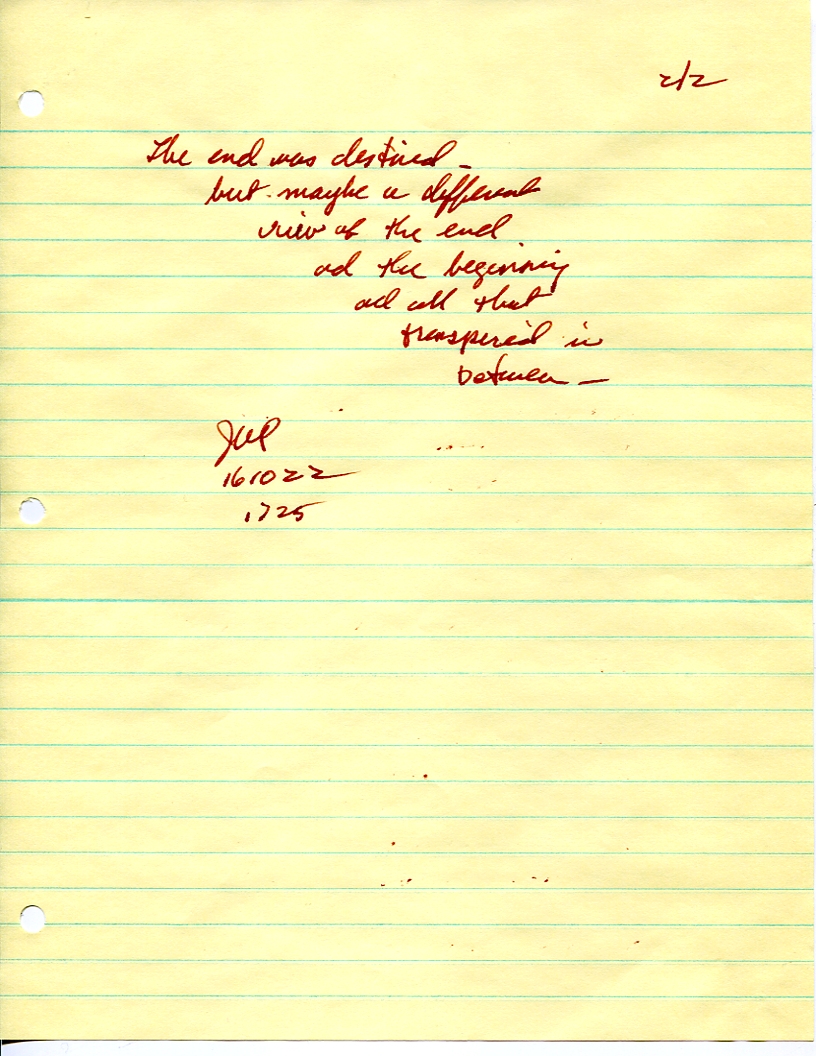 2/2
The end was destined —
but maybe a different
view of the end
ad the beginning
ad all that
transpired in
between —
161022
1725